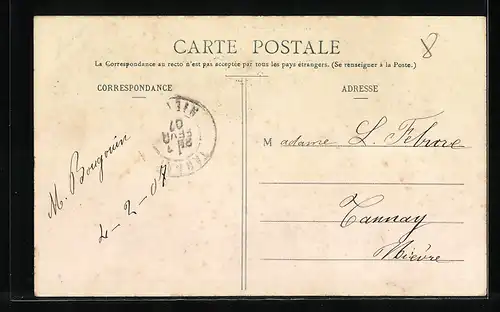 CARTE POSTALE
8
La Correspondance au recto n'est pas acceptée par tous les pays étrangers. (Se renseigner à la Poste.)
CORRESPONDANCE
ADRESSE
M. Bougouin
4-2-07
FEVR
07
Madame L. Febvre
Tannay
Nièvre